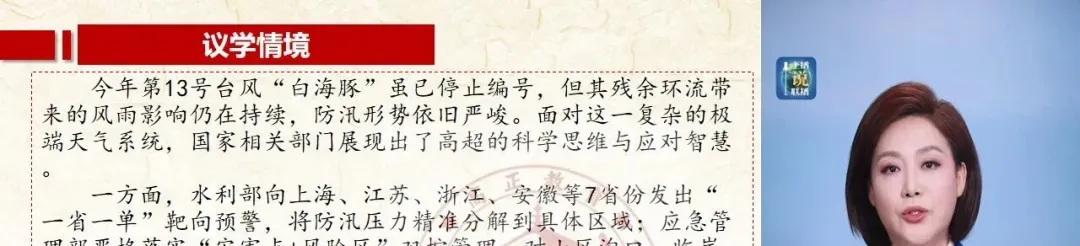 议学情境
今年第13号台风“白海豚”虽已停止编号，但其残余环流带
来的风雨影响仍在持续，防汛形势依旧严峻。面对这一复杂的极
端天气系统，国家相关部门展现出了高超的科学思维与应对智慧
。
一方面，水利部向上海、江苏、浙江、安徽等7省份发出“
一省一单”靶向预警，将防汛压力精准分解到具体区域；应急管
主播
说
联播
正教